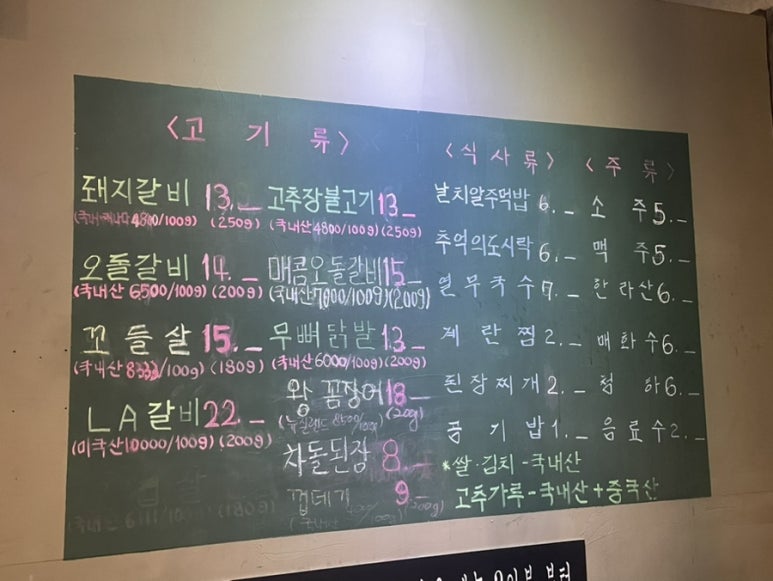 <고 기 류>
돼지갈비 13.-
4800/100g) (250g)
오돌갈비 14.-
(국내산 6500/100g) (200g)
꼬들살 15.-
(국내산 8332/100g) (180g)
LA갈비 22.-
(미국산 10000/100g) (200g)
고추장불고기 13.-
(국내산 4800/100g) (250g)
매콤오돌갈비 15.-
(국내산 7000/100g) (200g)
무뼈닭발 13.-
(국내산 6000/100g) (200g)
왕꼼장어 18.-
(뉴질랜드 8500/100g) (200g)
차돌된장 8.-
껍데기 9.-
(국내산 /100g) (200g)
국내산 6111/100g) (180g)
<식 사 류>
날치알주먹밥 6.-
추억의도시락 6.-
열무국수 7.-
계란찜 2.-
된장찌개 2.-
공기밥 1.-
<주 류>
소 주 5.-
맥 주 5.-
한라산 6.-
매화수 6.-
청 하 6.-
음료수 2.-
*쌀·김치-국내산
고추가루-국내산+중국산